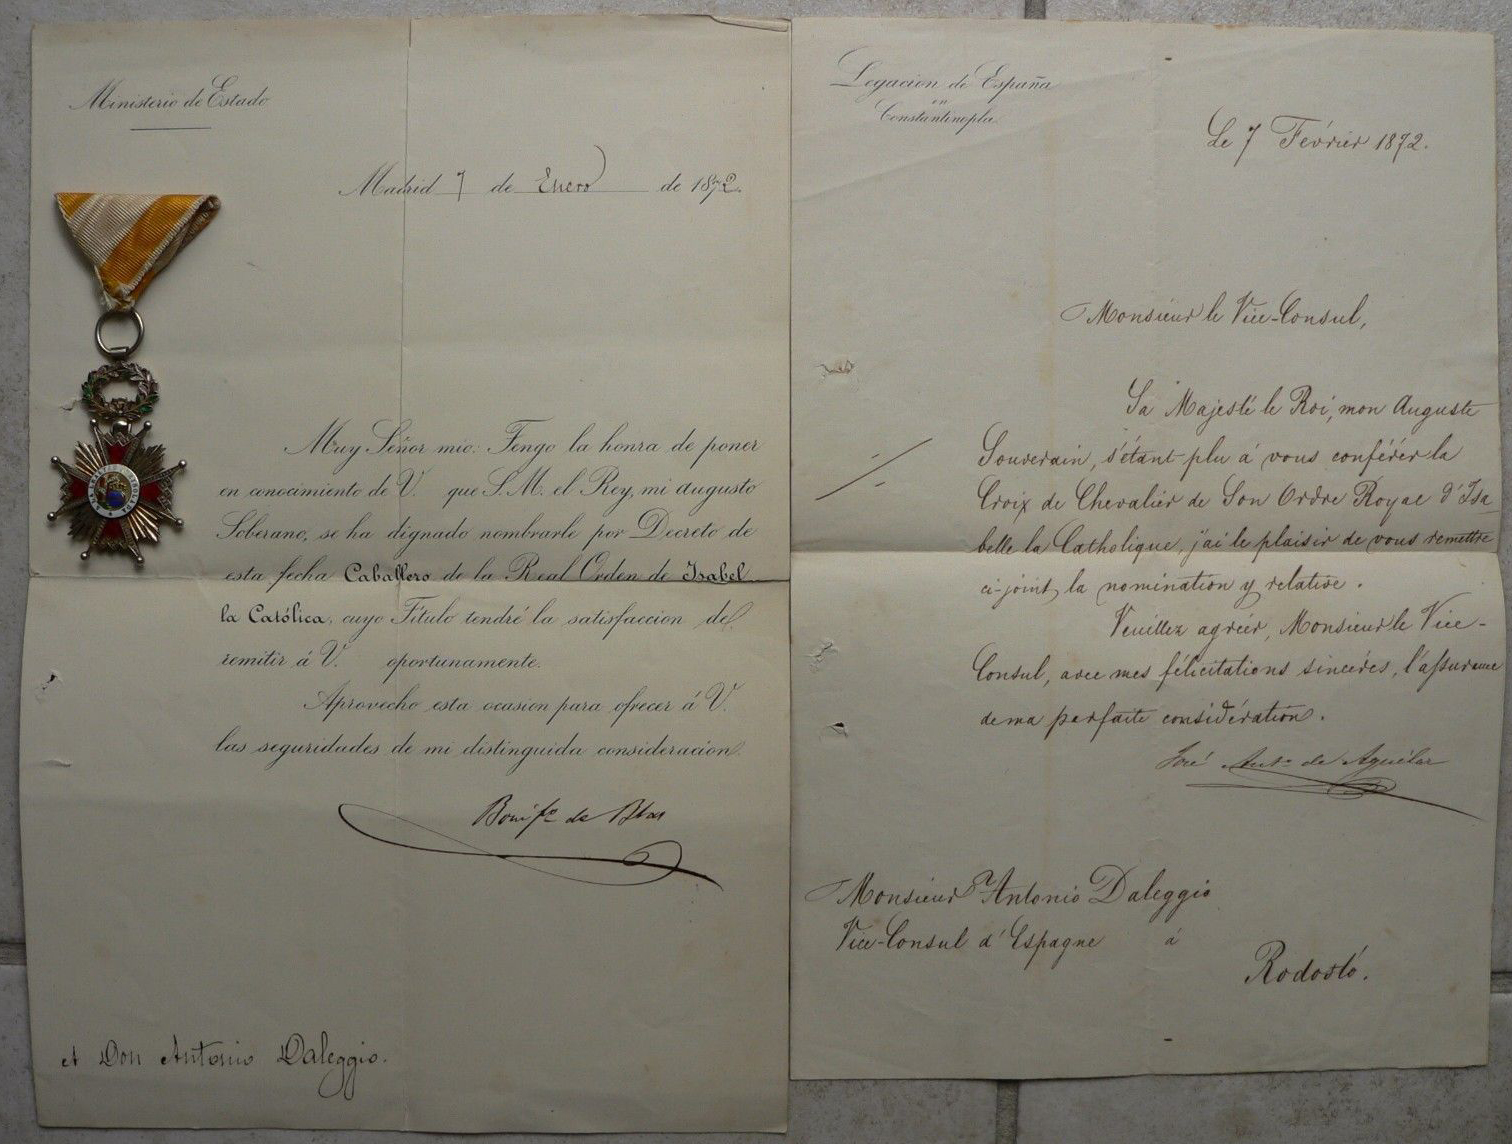 Ministerio de Estado
Madrid 7 de Enero de 1872.
Muy Señor mio: Tengo la honra de poner
en conocimiento de V. que S. M. el Rey, mi augusto
Soberano, se ha dignado nombrarle por Decreto de
esta fecha Caballero de la Real Orden de Isabel
la Católica, cuyo Título tendré la satisfaccion de
remitir á V. oportunamente.
Aprovecho esta ocasion para ofrecer á V.
las seguridades de mi distinguida consideracion.
Bonifº de Blas
A Don Antonio Daleggio.
Legacion de España
en
Constantinopla.
Le 7 Février 1872.
Monsieur le Vice-Consul,
Sa Majesté le Roi, mon Auguste
Souverain, s'étant plu à vous conférer la
Croix de Chevalier de Son Ordre Royal d'Isa-
belle la Catholique, j'ai le plaisir de vous remettre
ci-joint, la nomination y relative.
Veuillez agréer, Monsieur le Vice-
Consul, avec mes félicitations sincères, l'assurance
de ma parfaite considération.
José Antº de Aguilar
Monsieur Antonio Daleggio
Vice-Consul d'Espagne à
Rodosto.